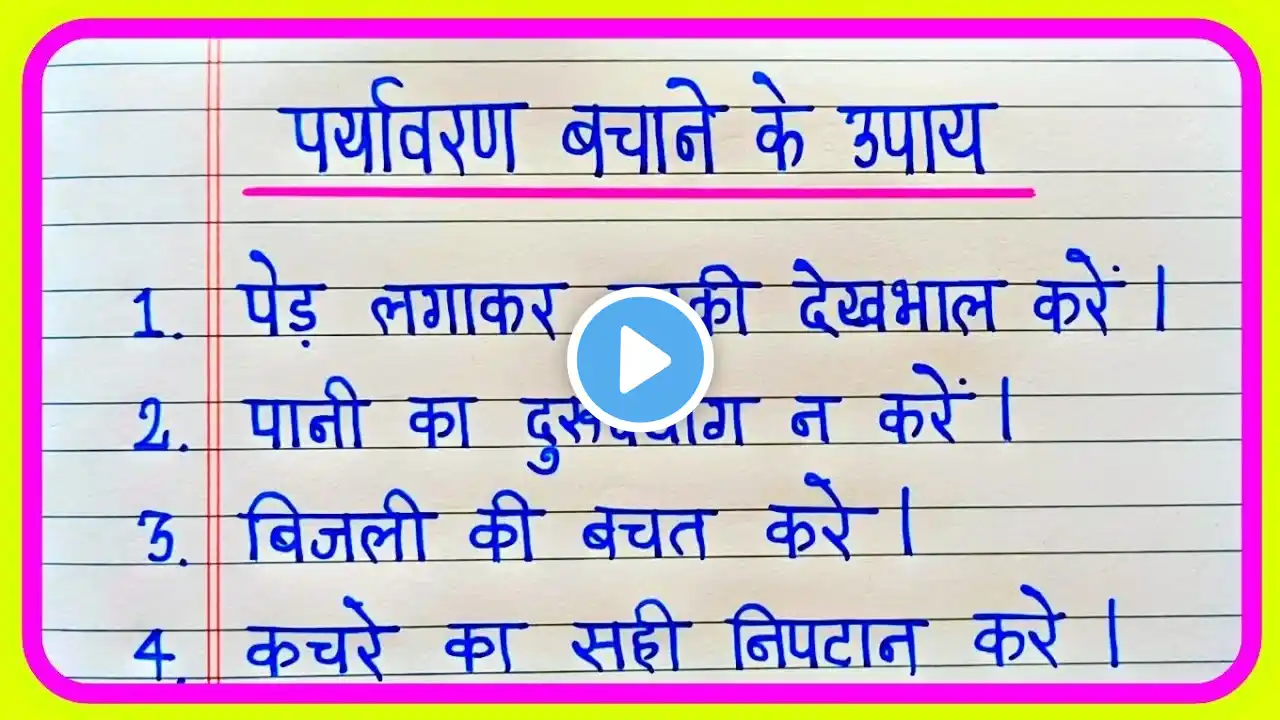 पर्यावरण बचाने के उपाय
1. पेड़ लगाकर देखभाल करें।
2. पानी का न करें।
3. बिजली की बचत करे।
4. कचरे का सही निपटान करे।